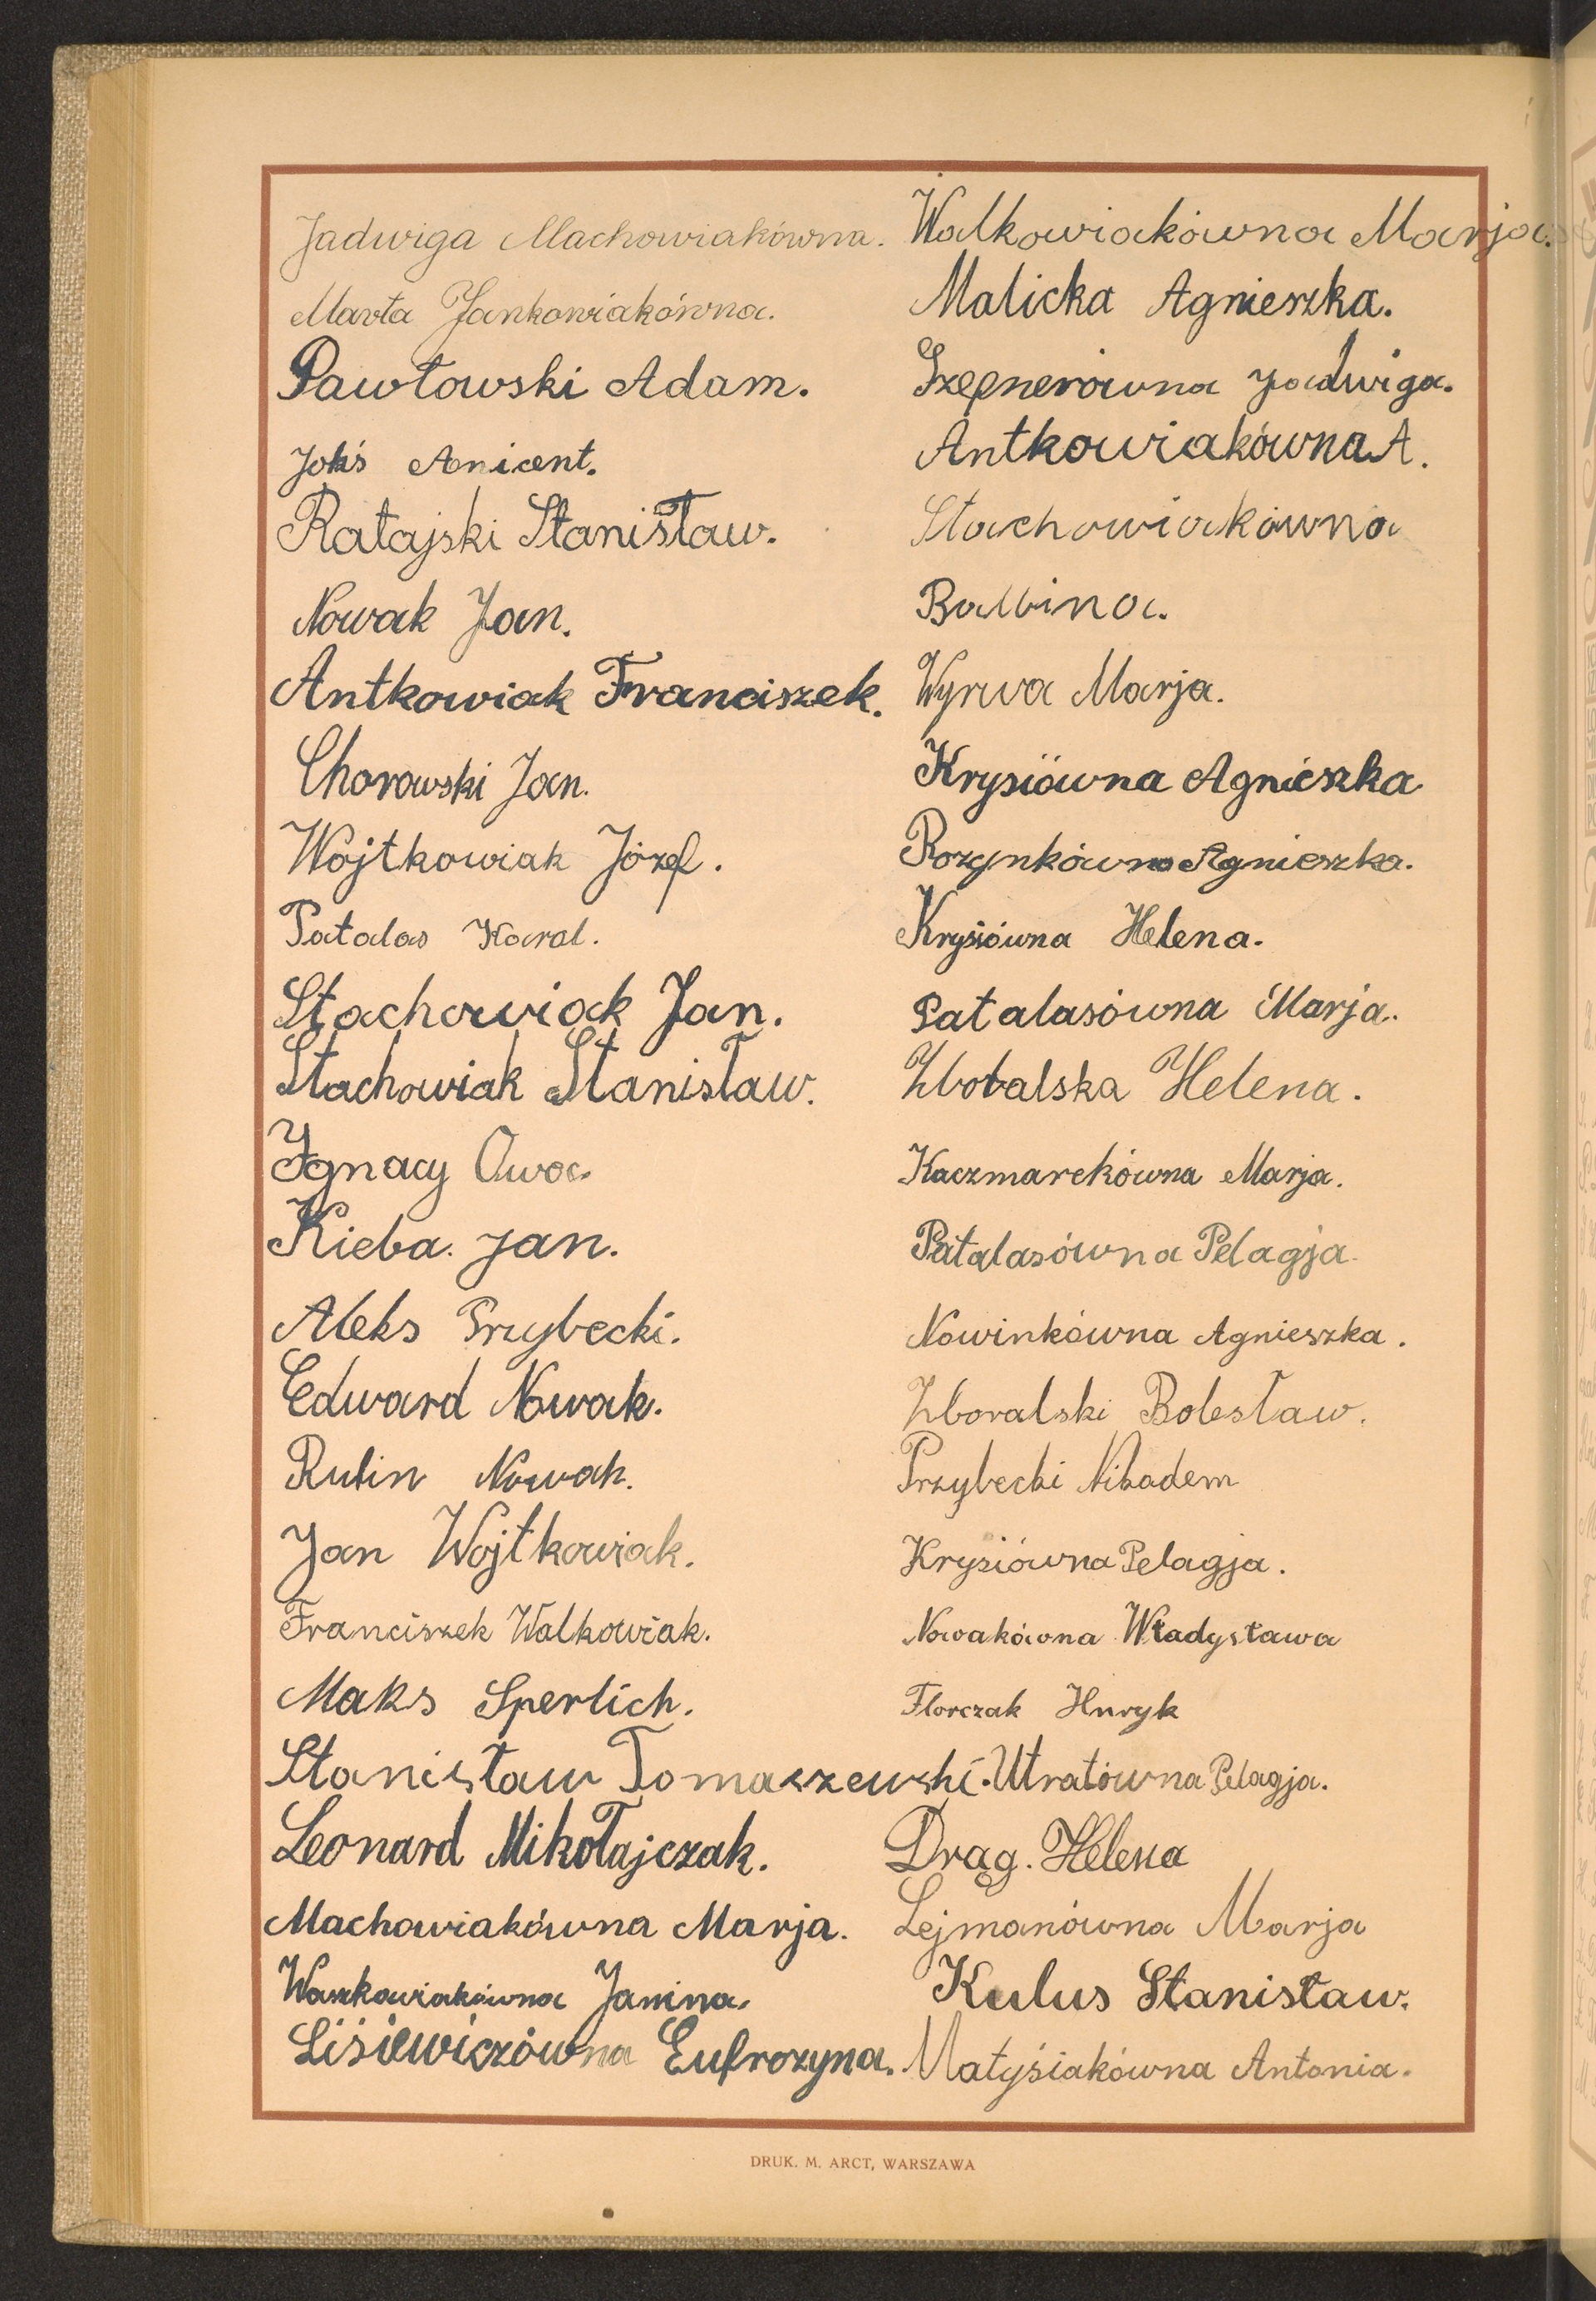 Jadwiga Machowiakówna.
Marta Jankowiakówna.
Pawłowski Adam.
Jokś Anicent.
Ratajski Stanisław.
Nowak Jan.
Antkowiak Franciszek.
Chorowski Jan.
Wojtkowiak Józef.
Patalas Karol.
Stachowiak Jan.
Stachowiak Stanisław.
Ignacy Owoc.
Kieba. Jan.
Aleks Przybecki.
Edward Nowak.
Nowak.
Jan Wojtkowiak.
Franciszek Walkowiak.
Maks Sperlich.
Stanisław Tomaszewski.
Leonard Mikołajczak.
Machowiakówna Marja.
Waszkowiakówna Janina.
Lisiewiczówna Eufrozyna.
Walkowiakówna Marja.
Malicka Agnieszka.
Szepnerówna Jadwiga.
Antkowiakówna A.
Stachowiakówna
Balbina.
Wyrwa Marja.
Krysiówna Agnieszka
Rozynkówna Agnieszka.
Krysiówna Helena.
Patalasówna Marja.
Zboralska Helena.
Kaczmarekówna Marja.
Patalasówna Pelagja.
Nowinkówna Agnieszka.
Zboralski Bolesław.
Przybecki Nikodem
Krysiówna Pelagja.
Nowakówna Władysława
Florczak Hnryk
Utratówna Pelagja.
Drag. Helena
Lejmanówna Marja
Kulus Stanisław.
Matysiakówna Antonia.
DRUK. M. ARCT, WARSZAWA